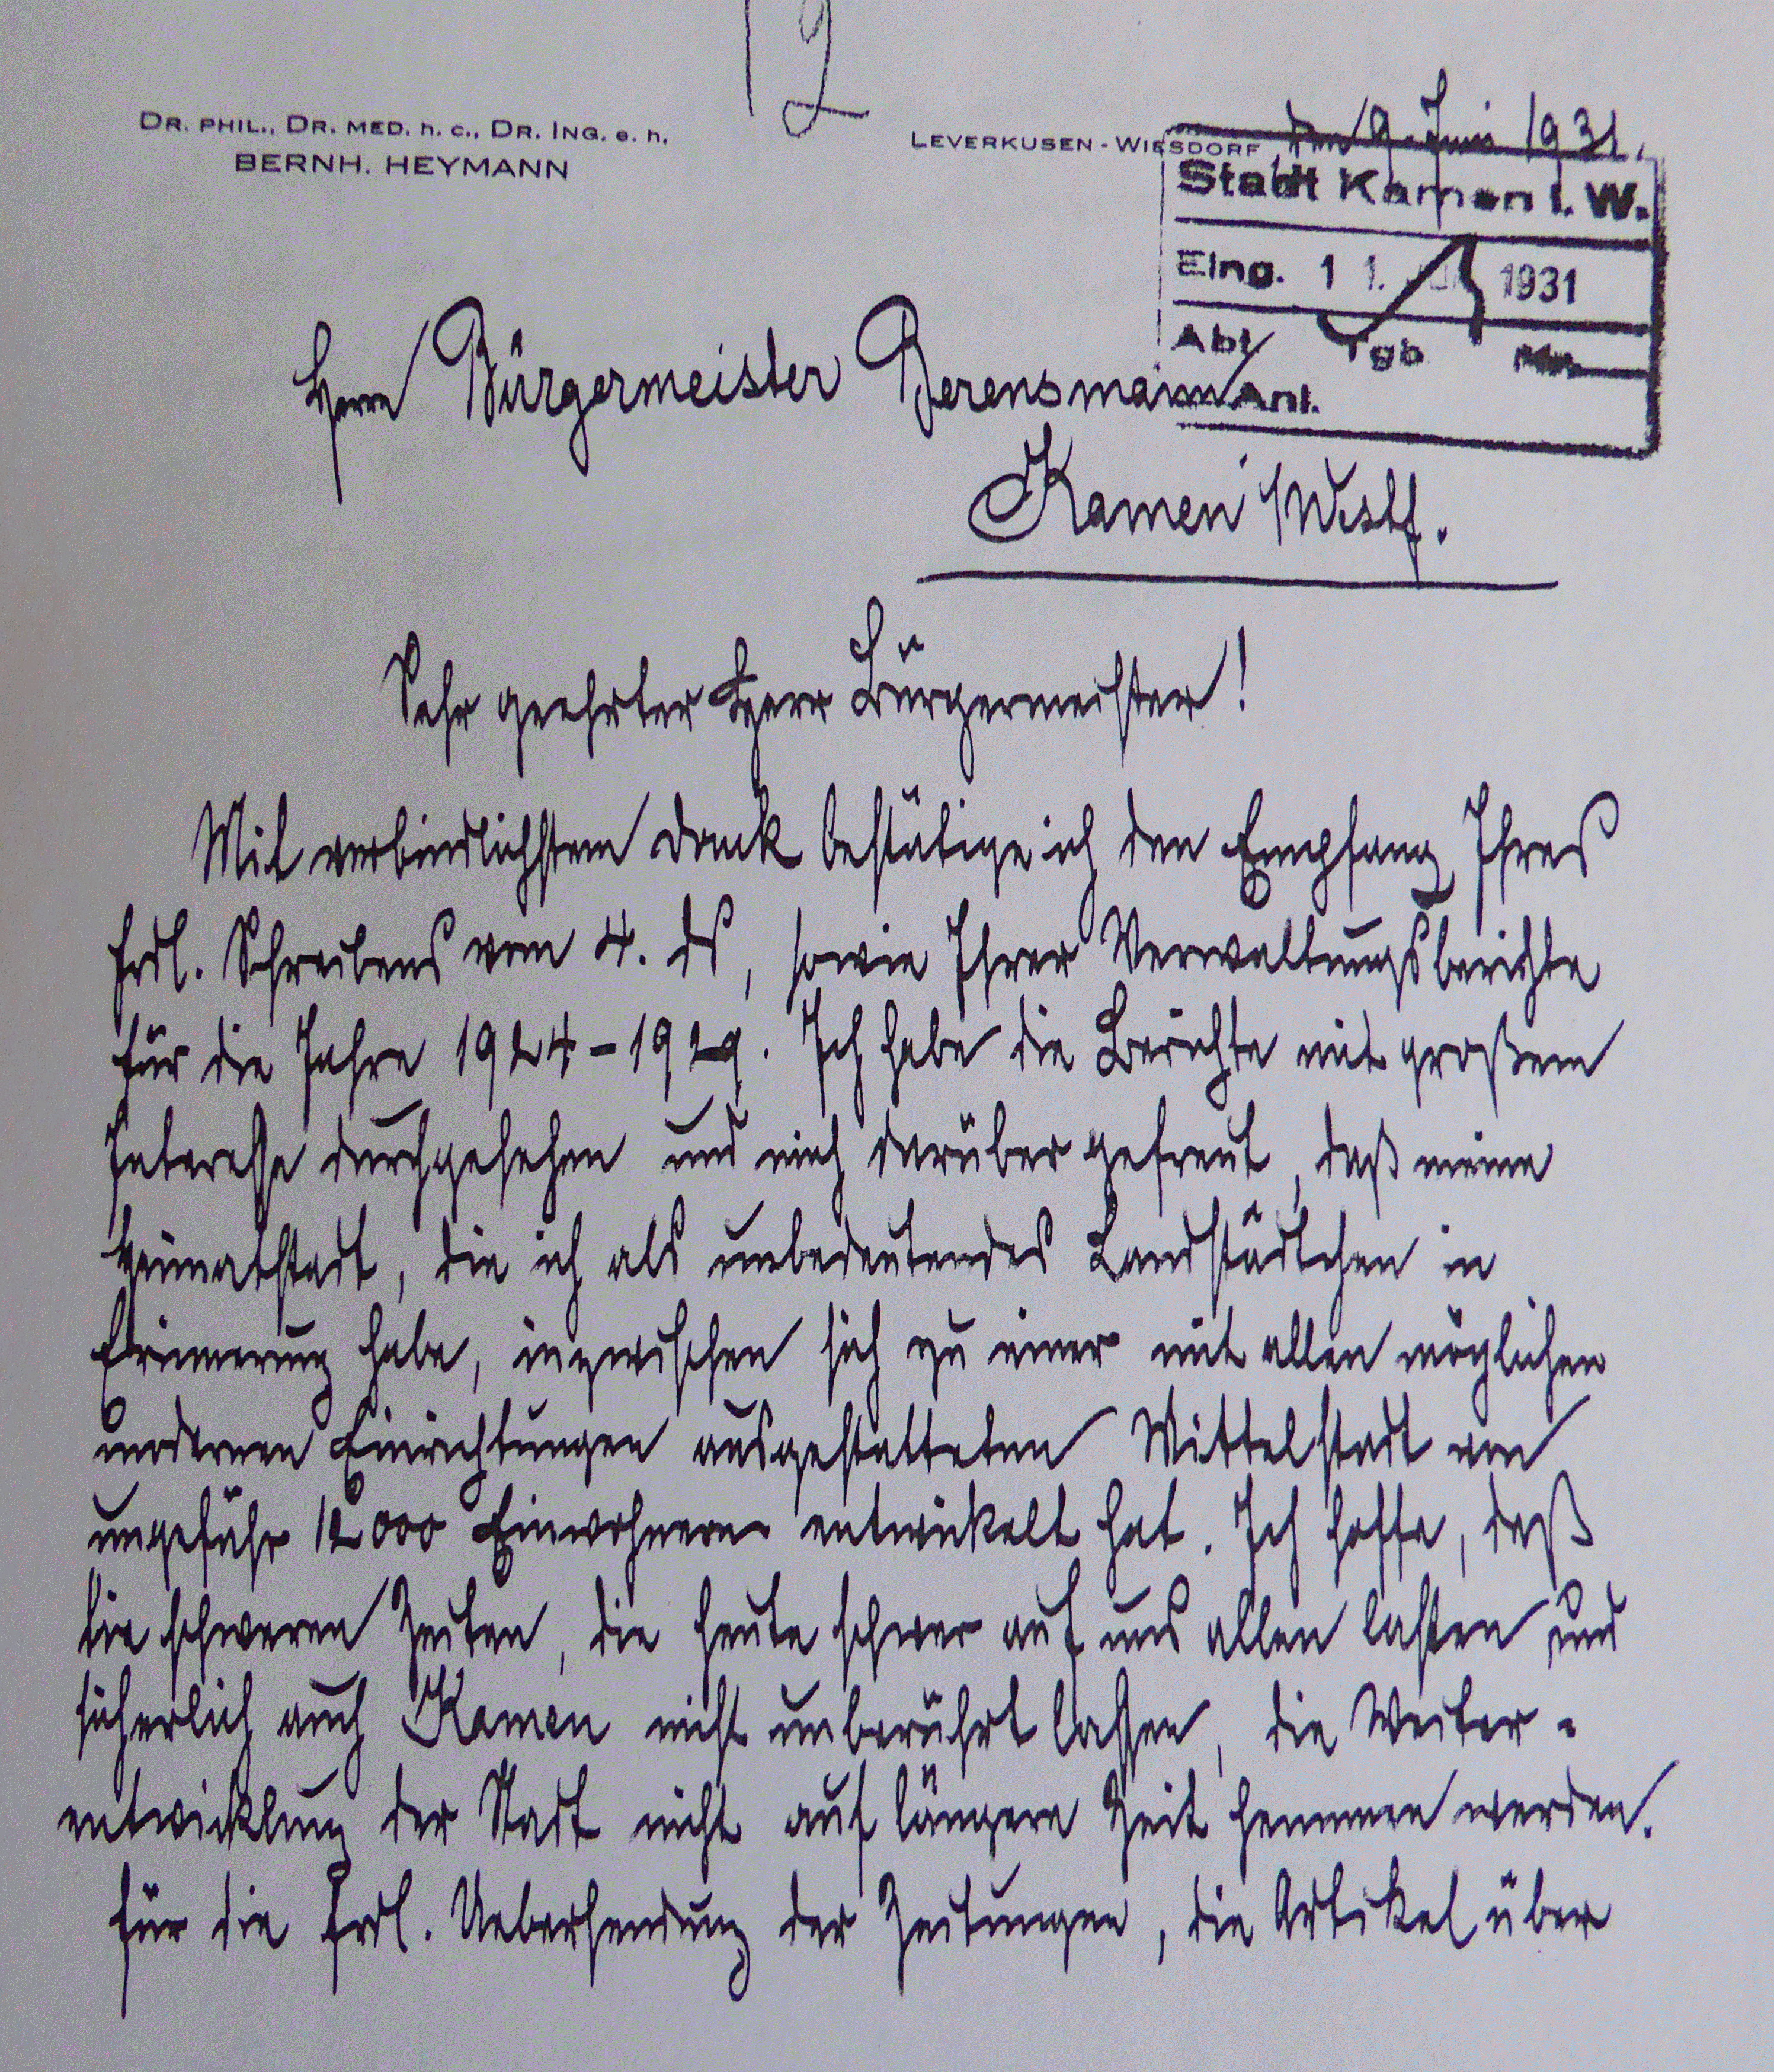 19
DR. PHIL., DR. MED. h. c., DR. ING. e. h.
BERNH. HEYMANN
LEVERKUSEN - WIESDORF, den 9. Juni 1931.
Stadt Kamen i. W.
Eing. 11. JUNI 1931
Abt. Tgb. Nr.
Anl.
Herrn Bürgermeister Berensmann
Kamen i/Westf.
Sehr geehrter Herr Bürgermeister!
Mit verbindlichstem Dank bestätige ich den Empfang Ihres
frdl. Schreibens vom 4. ds, sowie Ihrer Verwaltungsberichte
für die Jahre 1924-1929. Ich habe die Berichte mit großem
Interesse durchgesehen und mich darüber gefreut, daß meine
Heimatstadt, die ich als unbedeutendes Landstädtchen in
Erinnerung habe, inzwischen sich zu einer mit allen möglichen
modernen Einrichtungen ausgestatteten Mittelstadt von
ungefähr 12000 Einwohnern entwickelt hat. Ich hoffe, daß
die schweren Zeiten, die heute schwer auf uns allen lasten und
sicherlich auch Kamen nicht unberührt lassen, die Weiter-
entwicklung der Stadt nicht auf längere Zeit hemmen werden.
Für die frdl. Uebersendung der Zeitungen, die Artikel über